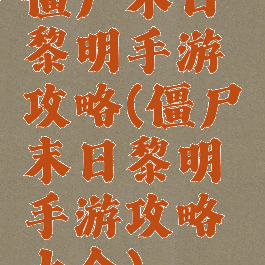 僵尸末日
黎明手游
攻略(僵尸
末日黎明
手游攻略
大全)